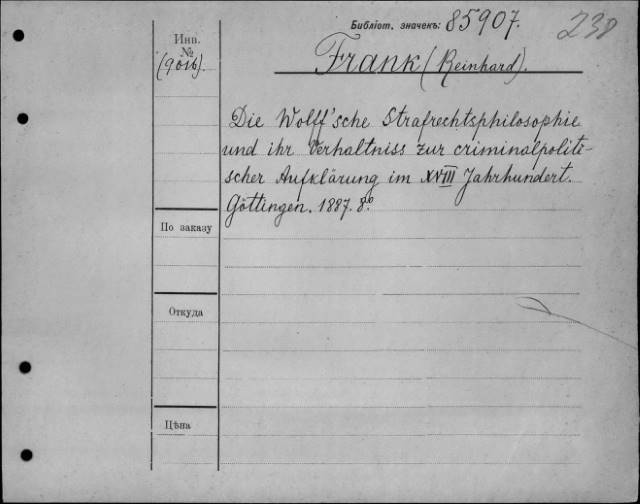 Библіот. значекъ: 85907.
238
Инв.
№
(9016).
Frank (Reinhard).
Die Wolff'sche Strafrechtsphilosophie
und ihr Verhaltniss zur criminalpoliti-
scher Aufklärung im XVIII Jahrhundert.
Göttingen. 1887. 8º
По заказу
Откуда
Цѣна